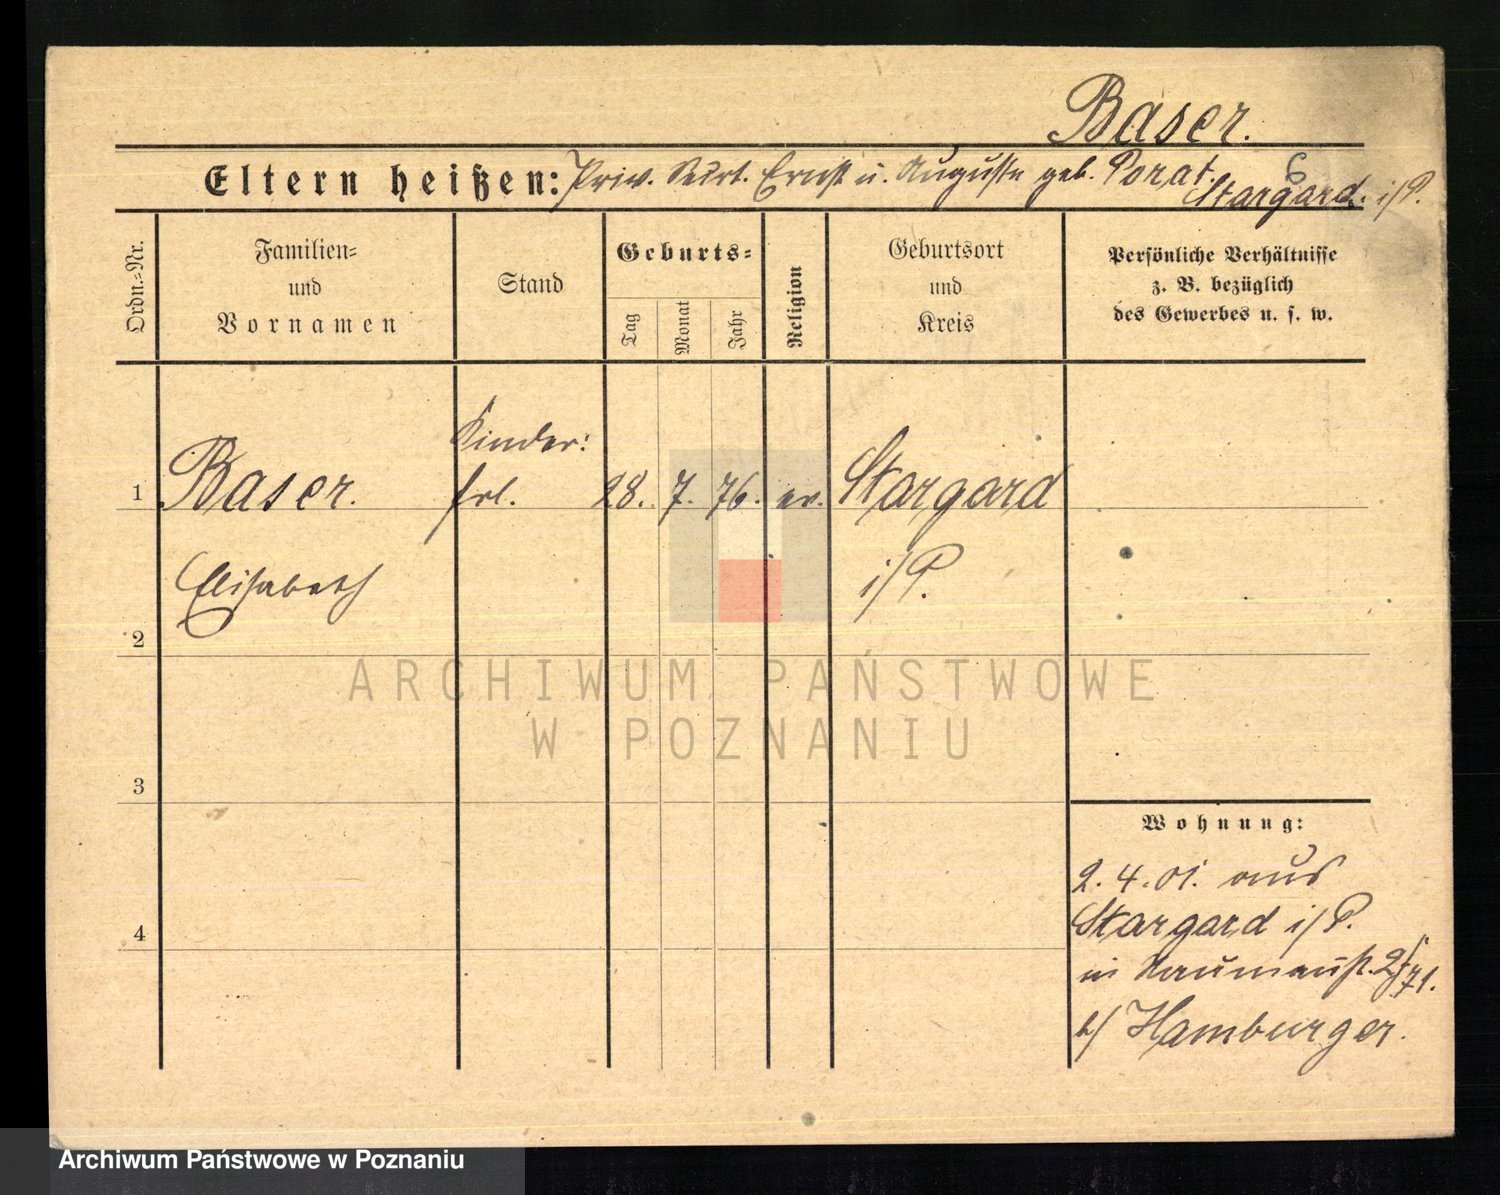 Baser.
Eltern heißen: Priv. Sekrt. Ernst u. Auguste geb. Porat. 6
Stargard. i/P.
Ordn.=Nr.
Familien=
und
Vornamen
Stand
Geburts=
Tag
Monat
Jahr
Religion
Geburtsort
und
Kreis
Persönliche Verhältnisse
z. B. bezüglich
des Gewerbes u. s. w.
Kinder:
1 Baser. Frl. 28. 7. 76. ev. Stargard
Elisabeth i/P.
2
3
4
Wohnung:
2. 4. 01. aus
Stargard i/P.
in Naumannst. 71.
b/ Hamburger.
ARCHIWUM PAŃSTWOWE
W POZNANIU
Archiwum Państwowe w Poznaniu